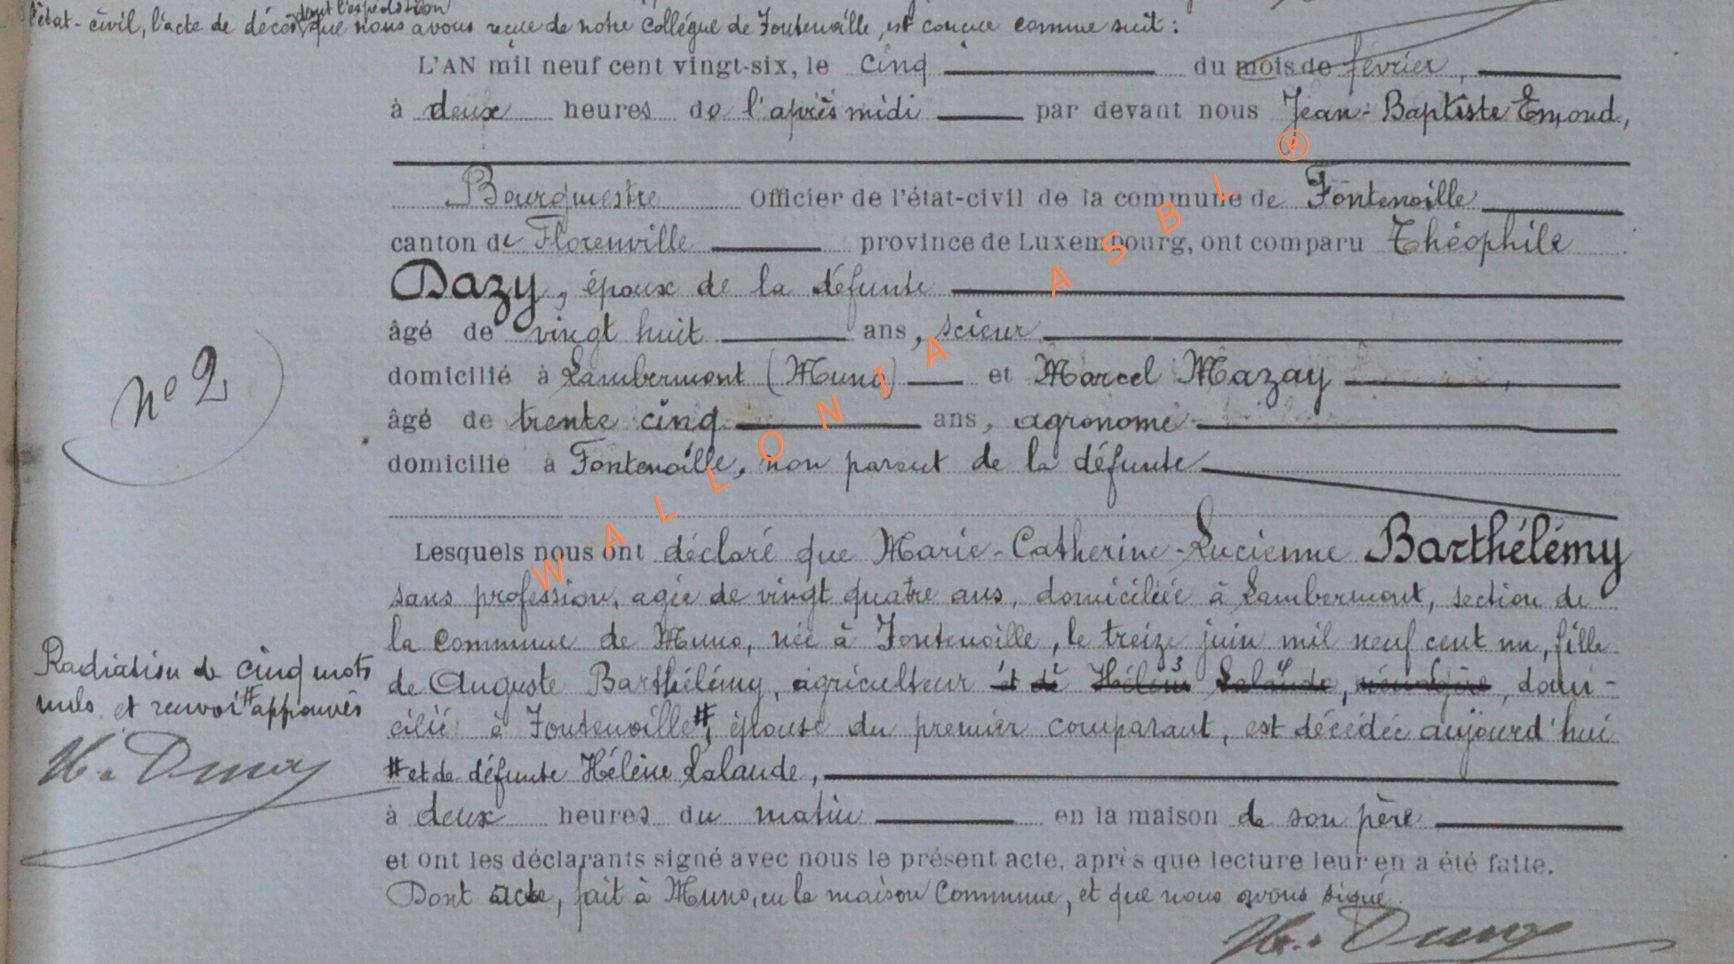 l'état-civil, l'acte de décès, dont l'expédition que nous avons reçue de notre collègue de Fontenoille, est conçue comme suit :
L'AN mil neuf cent vingt-six, le cinq du mois de février,
à deux heures de l'après midi par devant nous Jean-Baptiste Emond,
Bourgmestre Officier de l'état-civil de la commune de Fontenoille
canton de Florenville province de Luxembourg, ont comparu Théophile
Dazy, époux de la défunte
âgé de vingt huit ans, scieur
domicilié à Lambermont (Muno) et Marcel Mazay,
âgé de trente cinq ans, agronome
domicilié à Fontenoille, non parent de la défunte
Lesquels nous ont déclaré que Marie-Catherine-Lucienne Barthélémy
sans profession, agée de vingt quatre ans, domiciliée à Lambermont, section de
la commune de Muno, née à Fontenoille, le treize juin mil neuf cent un, fille
de Auguste Barthélémy, agriculteur et de Hélène Lalande, ménagère, domi-
cilié à Fontenoille#, épouse du premier comparant, est décédée aujourd'hui
# et de défunte Hélène Lalande,
à deux heures du matin en la maison de son père
et ont les déclarants signé avec nous le présent acte, après que lecture leur en a été faite.
Dont acte, fait à Muno, en la maison Commune, et que nous avons signé.
N° 2
Radiation de cinq mots
nuls et renvoi # approuvés
WALLONIA ASBL ®